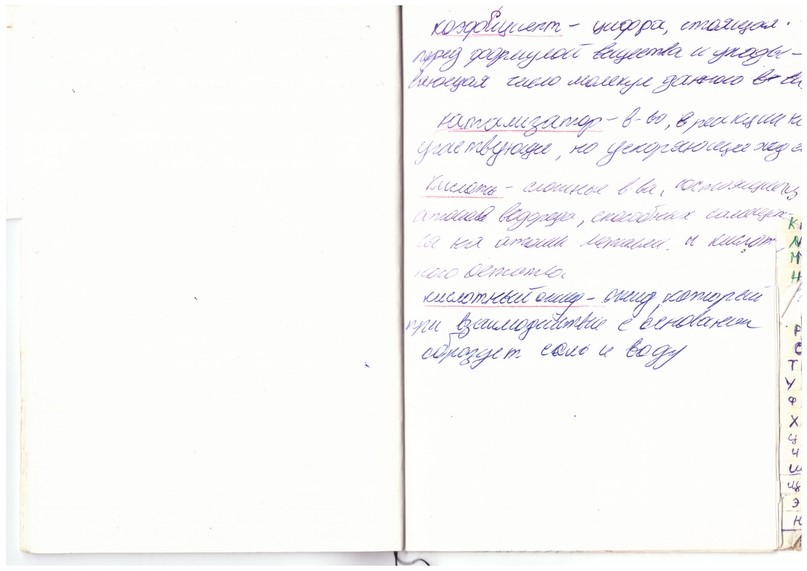 коэффициент – цифра, стоящая
перед формулой вещества и указы-
вающая число молекул данного в-ва
катализатор – в-во, в реакции не
участвующие, но ускоряющие ход
Кислоты – сложные в ва, состоящие из
атомов водорода, способных
на атомы металла и кислот
ного остатка
кислотный оксид – оксид, который
при взаимодействие с основанием
образует соль и воду
К
Л
М
Н
Р
С
Т
У
Ф
Х
Ц
Ч
Ш
Щ
Э